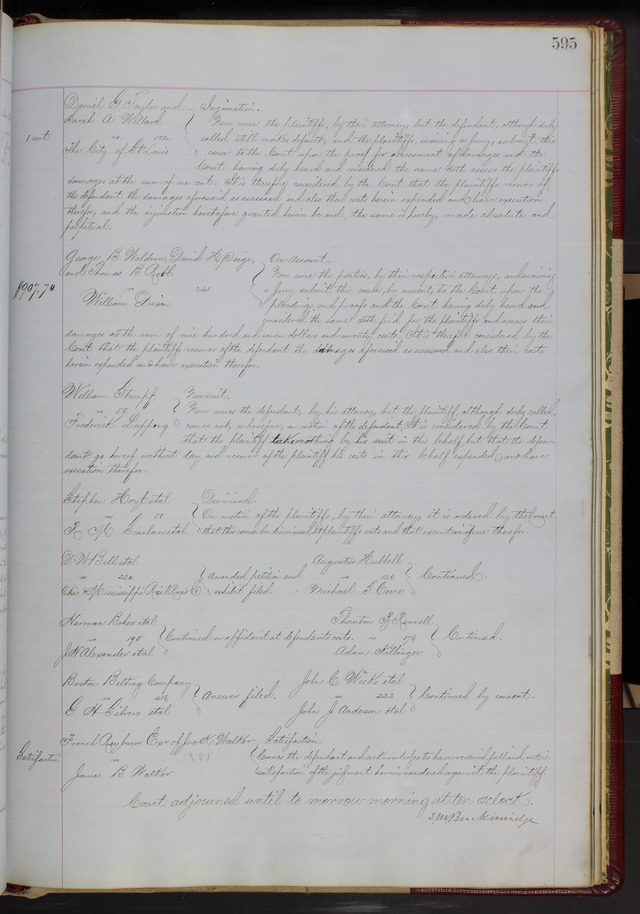 595
Daniel G Taylor and Injunction.
Sarah A Willard Now come the plaintiffs, by their attorney, but the defendant, although duly
1 cent vs 112 called still makes default, and the plaintiffs, waiving a Jury, submit this
The City of St Louis cause to the Court upon the proof for assessment of damages and the
Court having duly heard and considered the same doth assess the plaintiffs
damages at the sum of one cent. It is therefore considered by the Court that the plaintiffs recover of
the defendant the damages aforesaid as assessed and also their costs herein expended and have execution
therefor, and the injunction heretofore granted herein be and, the same is hereby, made absolute and
perpetual.
George B Waldron, David H Paige, On Account.
and Thomas B Now come the parties, by their respective attorneys, and waiving
$907.70 vs 241 a Jury submit this cause, by consent, to the Court upon the
William Dixon pleadings and proofs and the Court having duly heard and
considered the same doth find for the plaintiffs and assess their
damages at the sum of nine hundred and seven dollars and seventy cents. It is therefore considered by the
Court that the plaintiffs recover of the defendant the damages aforesaid as assessed and also their costs
herein expended and have execution therefor.
William Stumpf Nonsuit.
vs 59 Now comes the defendant, by his attorney, but the plaintiff, although duly called,
Frederick comes not, wherefore, on motion of the defendant, It is considered by the Court
that the plaintiff take nothing by his suit in this behalf but that the defen-
dant go hereof without day and recover of the plaintiff his costs in this behalf expended and have
execution therefor.
Stephen Hoyt et al Dismissed.
vs 81 On motion of the plaintiffs, by their attorney it is ordered by the Court
R M Scanlan et al that this cause be dismissed at plaintiffs costs and that execution issue therefor.
D W Bell et al Augustus Hubbell
vs 220 Amended petition and vs 126 Continued.
Ohio & Mississippi Rail Road Co exhibit filed. Michael L
Herman Baker et al Thornton
vs 195 Continued on affidavit at defendants costs. vs 176 Continued.
J H Alexander et al Adam
Boston Belting Company John C Wicks et al
vs 416 Answer filed. vs 222 Continued by consent.
G H et al John J Anderson et al
French Rayburn Exr of Jno K Walker Satisfaction.
Satisfaction vs 387 Comes the defendant and acknowledges to have received full and entire
James B Walker satisfaction of the judgment herein rendered against the plaintiff
Court adjourned until to morrow morning at ten o'clock.